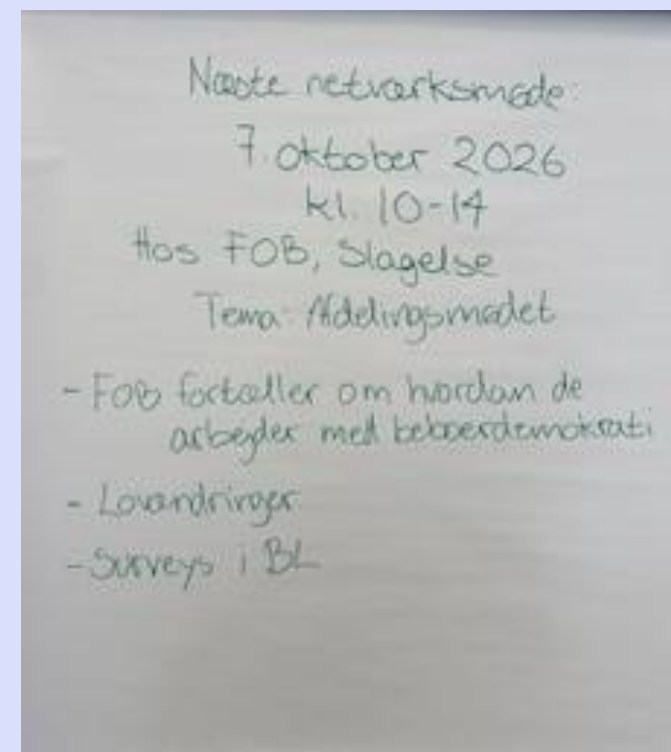 Næste netværksmøde:
7. oktober 2026
kl. 10-14
Hos FOB, Slagelse
Tema: Afdelingsmødet
- FOB fortæller om hvordan de
arbejder med beboerdemokrati
- Lovændringer
- Surveys i BL